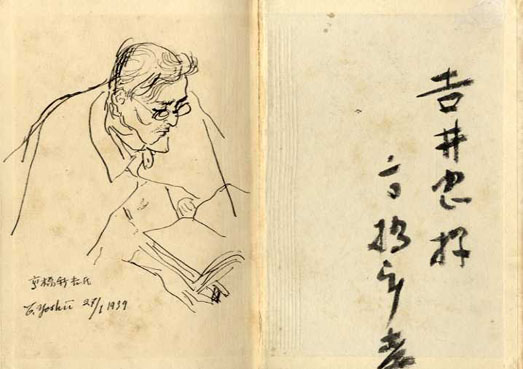 高橋新吉氏
T. Yoshii 27/I 1939
吉井忠様
高橋新吉